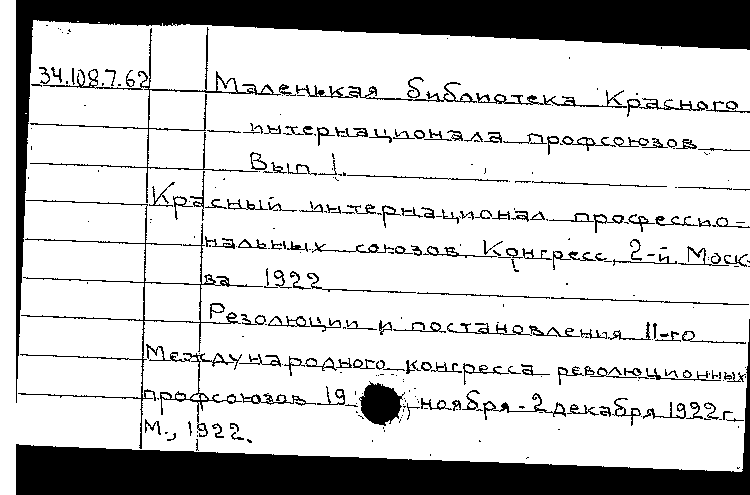 34.108.7.62 Маленькая библиотека Красного
интернационала профсоюзов.
Вып 1.
Красный интернационал профессио=
нальных союзов. Конгресс, 2-й. Моск-
ва 1922
Резолюции и постановления II-го
Международного конгресса революционных
профсоюзов 19 ноября - 2 декабря 1922 г.
М., 1922.